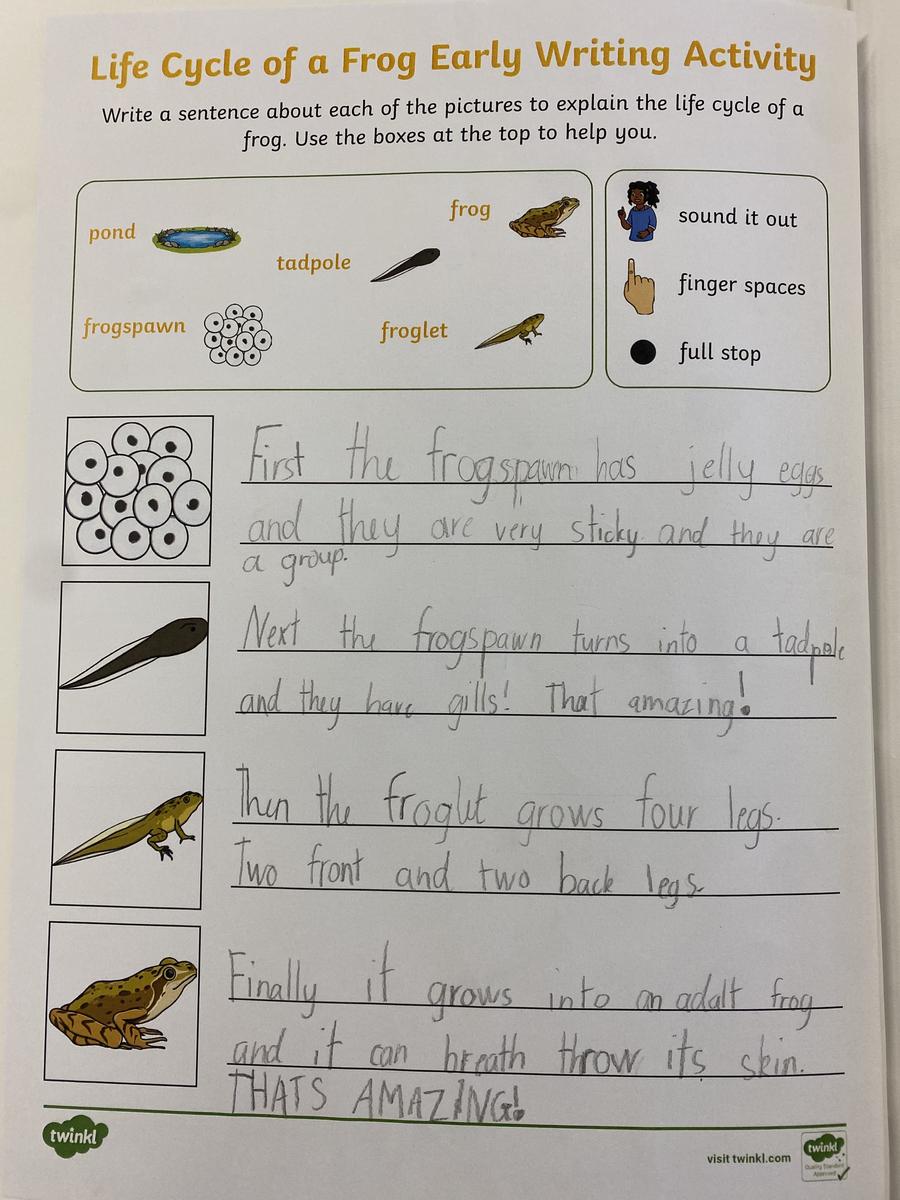 Life Cycle of a Frog Early Writing Activity
Write a sentence about each of the pictures to explain the life cycle of a
frog. Use the boxes at the top to help you.
pond
tadpole
frog
frogspawn
froglet
sound it out
finger spaces
full stop
First the frogspawn has jelly eggs
and they are very sticky. and they are
a group.
Next the frogspawn turns into a tadpole
and they have gills! That amazing!
Then the froglet grows four legs.
Two front and two back legs.
Finally it grows into an adalt frog
and it can breath throw its skin.
THATS AMAZING!
twinkl
visit twinkl.com
twinkl
Quality Standard
Approved